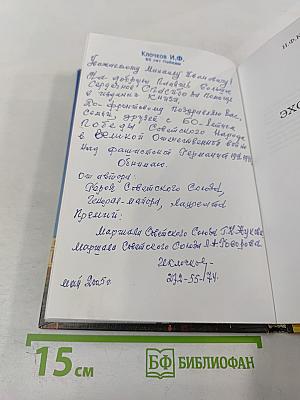 Клочков И.Ф.
60 лет Победы
Уважаемому Михаилу Ивановичу!
На добрую память. Больше
Сердечное Спасибо за помощь
в издании Книги.
По-фронтовому поздравляю Вас,
Семью, друзей с 60-летием
Победы Советского Народа
в Великой Отечественной войне
над фашистской Германией
Обнимаю.
от автора:
Герой Советского Союза,
Генерал-майор, лауреат
Премий:
Маршала Советского Союза Г.К. Жукова
Маршала Советского Союза Говорова
И. Клочков
272-55-174
май 2005 г.
И.Ф.К
ЭХО
15 см
БФ БИБЛИОФАН